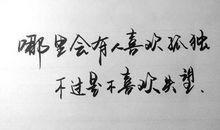 哪里会有人喜欢孤独
不过是不喜欢失望、